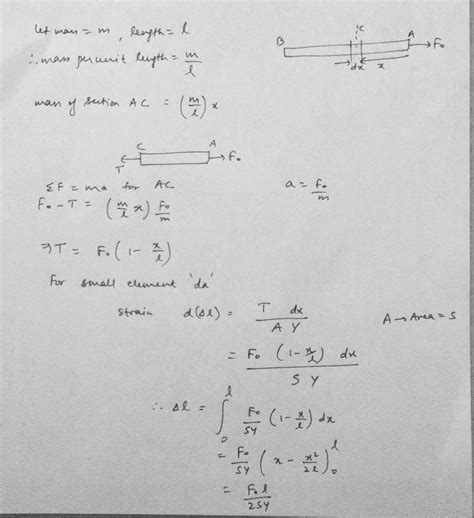 let mass = m, length = l
∴ mass per unit length = m/l
B C A → F₀
dx x
mass of section AC = (m/l) x
C A
T ← → F₀
ΣF = ma for AC a = F₀/m
F₀ - T = (m/l x) F₀/m
⇒ T = F₀ (1 - x/l)
For small element 'dx'
strain d(Δl) = T dx / A Y A → Area = S
= F₀ (1 - x/l) dx / S Y
∴ Δl = ∫₀ˡ F₀/SY (1 - x/l) dx
= F₀/SY (x - x²/2l)₀ˡ
= F₀ l / 2SY